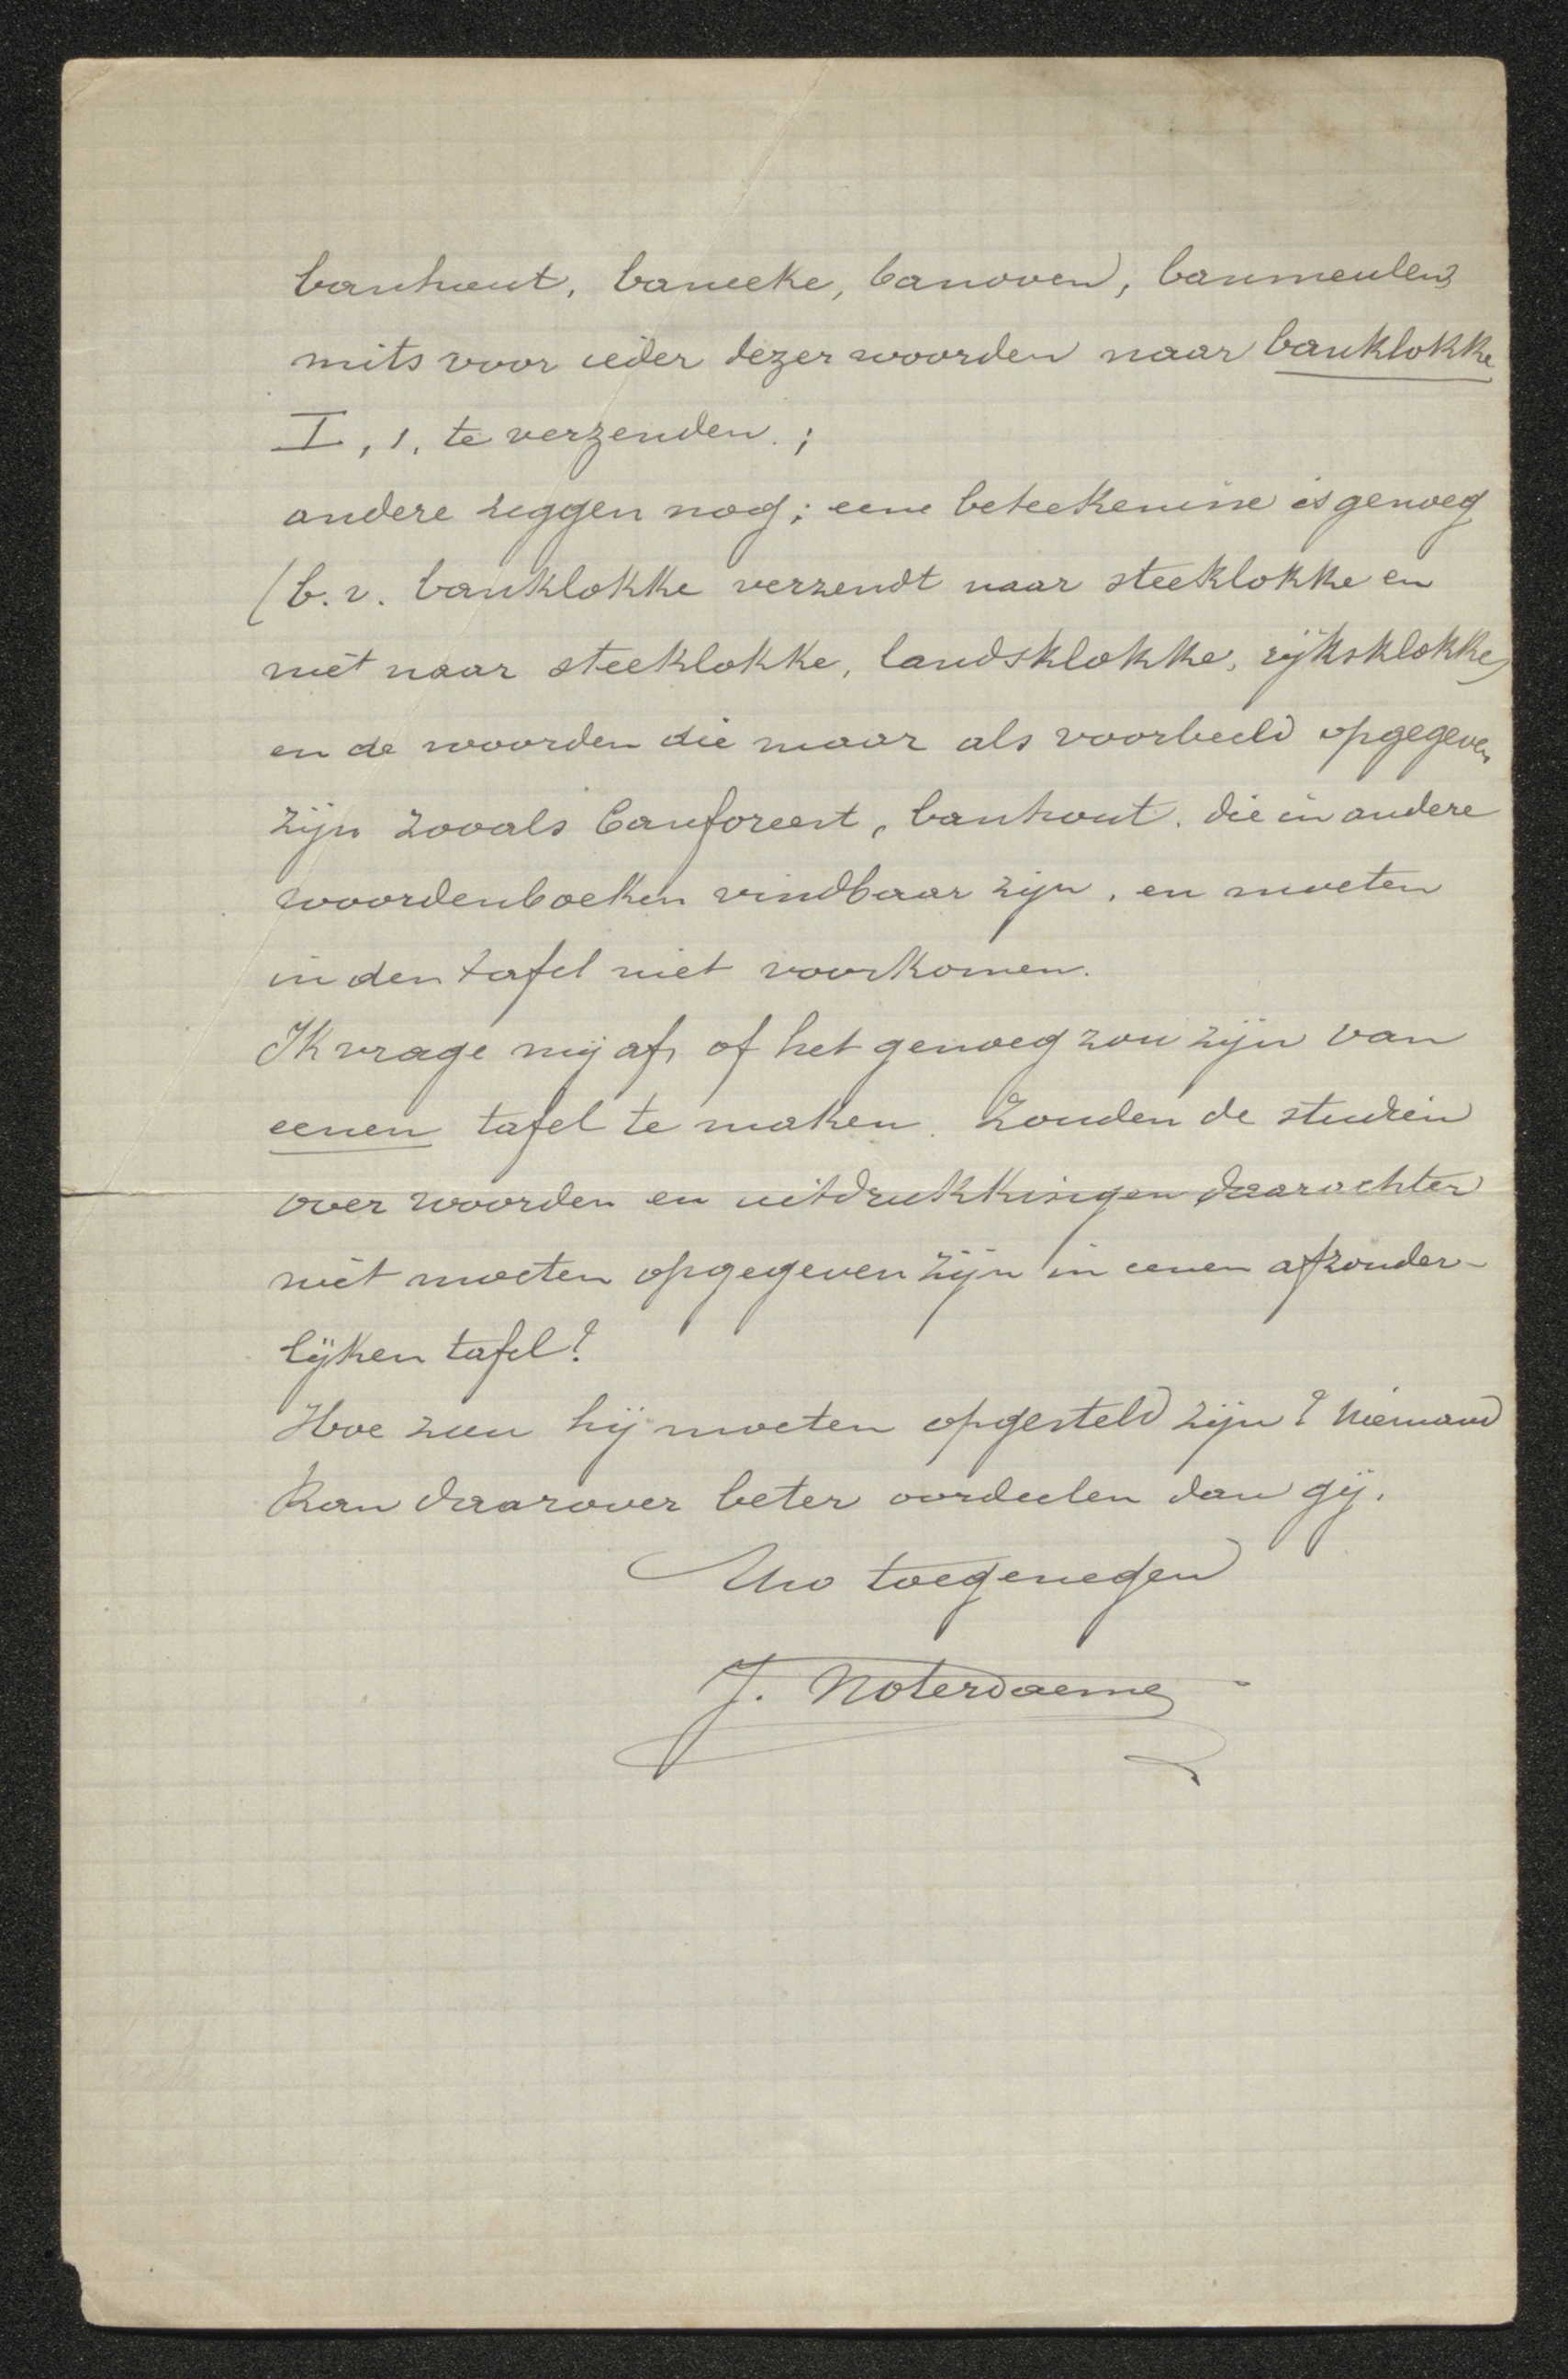 banhout, baneeke, banoven, banmeulen,
mits voor ieder dezer woorden naar banklokke
I, 1, te verzenden. ;
andere zeggen nog; eene beteekenisse is genoeg
(b.v. banklokke verzendt naar steeklokke en
niet naar steeklokke, landsklokke, rijksklokke)
en de woorden die maar als voorbeeld opgegeven
zijn zooals banforeest, banhout. die in andere
woordenboeken vindbaar zijn, en moeten
in den tafel niet voorkomen.
Ik vrage mij af, of het genoeg zou zijn van
eenen tafel te maken. Zouden de studiën
over woorden en uitdrukkingen daarachter
niet moeten opgegeven zijn in eenen afzonder-
lijken tafel?
Hoe zou hij moeten opgesteld zijn? Niemand
kan daarover beter oordeelen dan gij.
Uw toegenegen
J. Noterdaeme